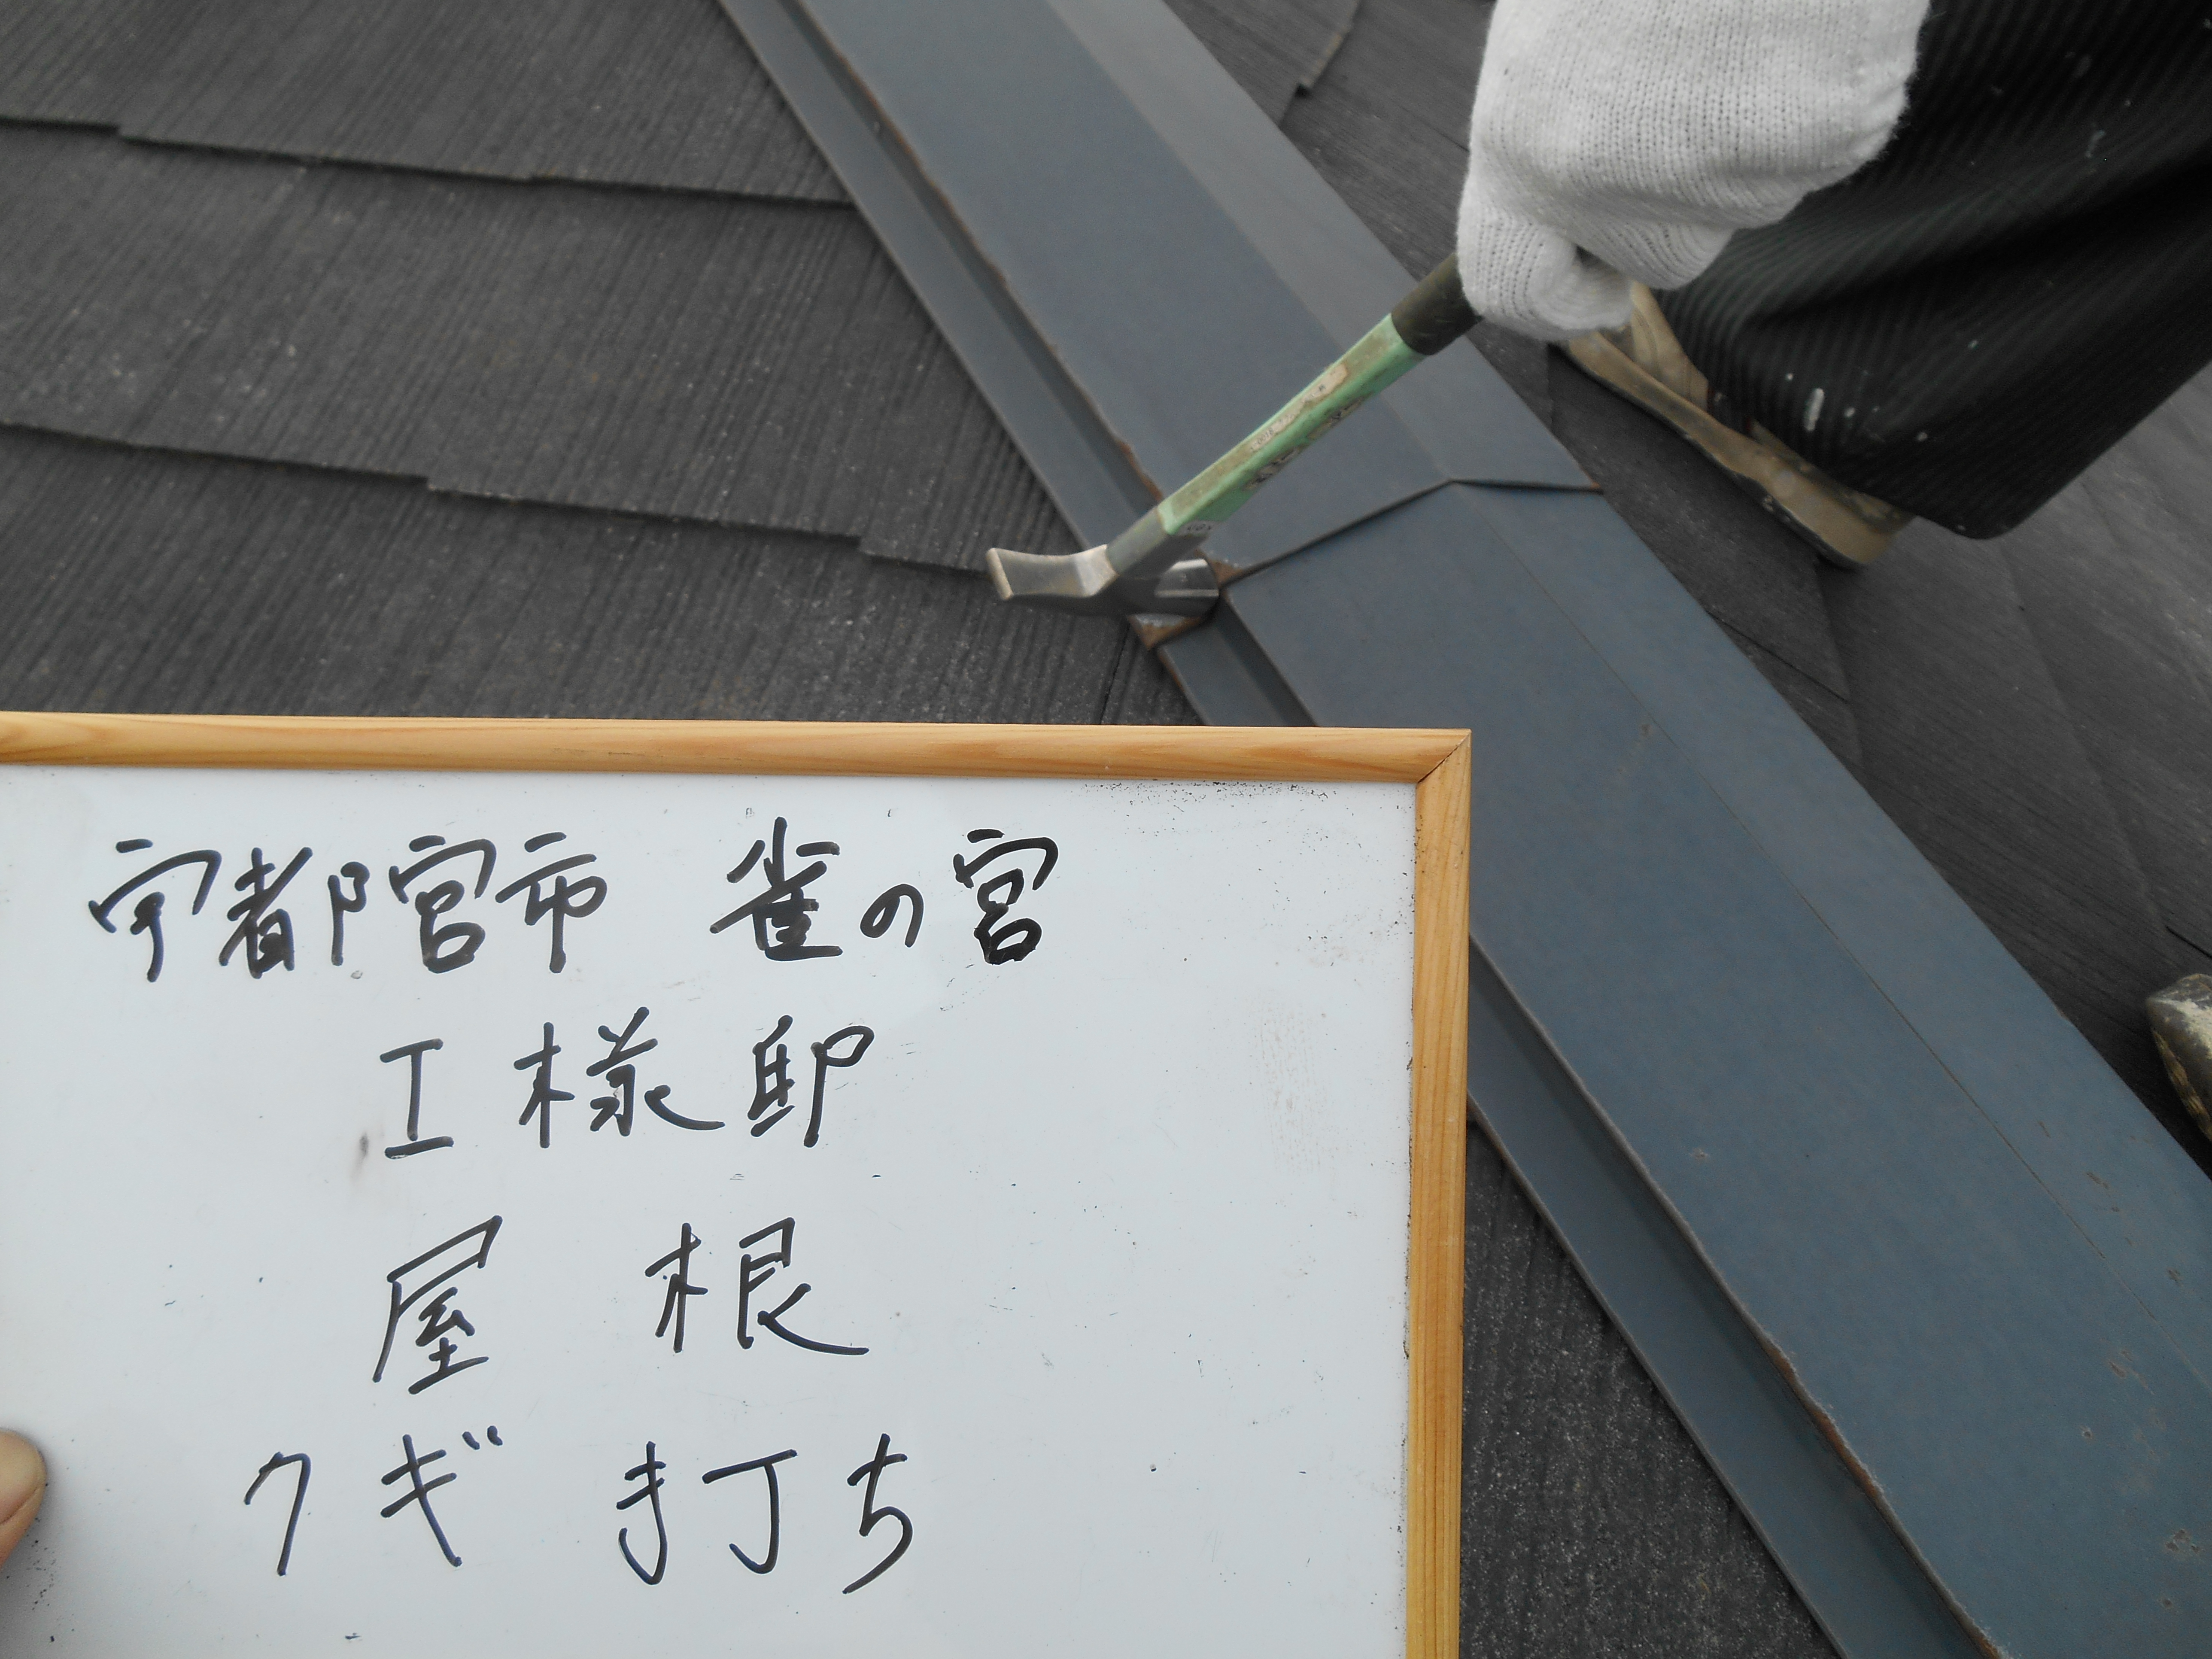 宇都宮市 雀の宮
工様邸
屋根
クギ打ち